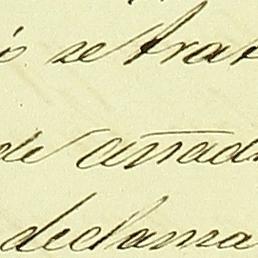 se trat
de añad
declama